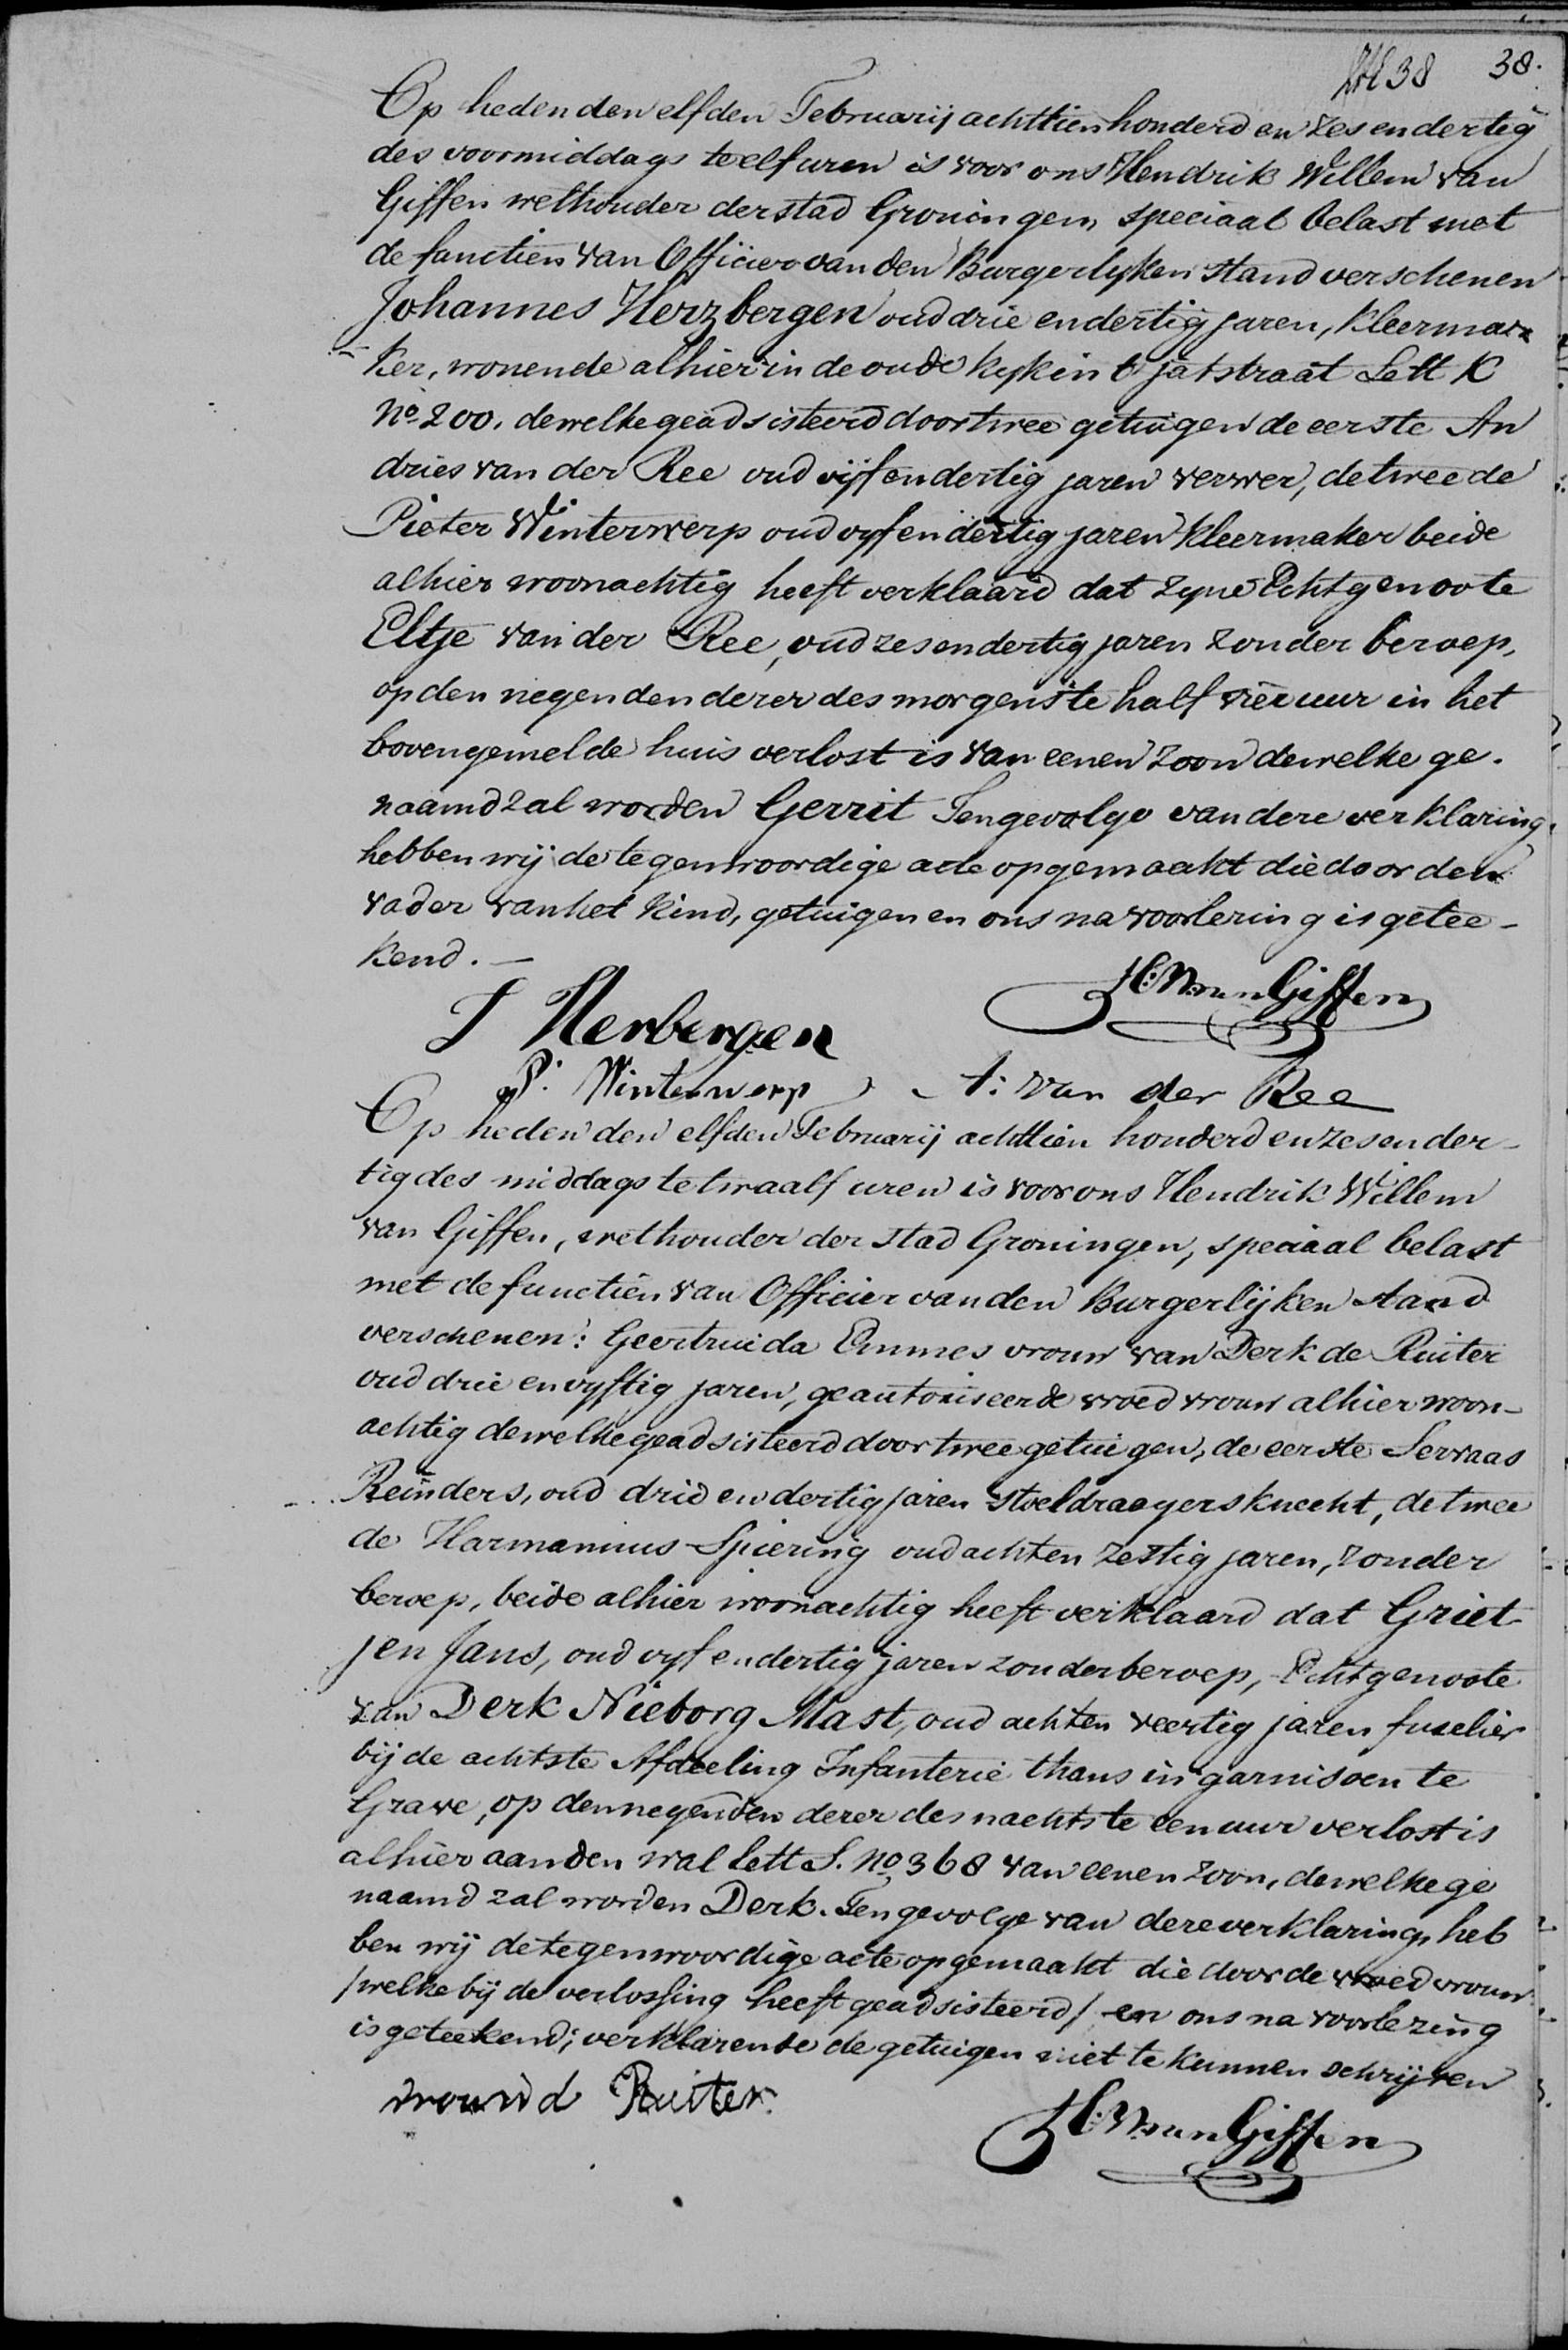 38 38.
Op heden den elfden Februarij achttien honderd en zes en dertig
des voormiddags te elf uren is voor ons Hendrik Willem van
Giffen wethouder der stad Groningen, speciaal belast met
de functien van Officier van den Burgerlyken stand verschenen
Johannes Herzbergen oud drie en dertig jaren, kleerma-
ker, wonende alhier in de oude kykin t jatstraat Lett K
No 200. dewelke geadsisteerd door twee getuigen de eerste An
dries van der Ree oud vijf en dertig jaren verwer, de tweede
Pieter Winterwerp oud vyf en dertig jaren kleermaker beide
alhier woonachtig heeft verklaard dat zyne Echtgenoote
Eltje van der Ree, oud zes en dertig jaren zonder beroep,
op den negenden dezer des morgens te half vier uur in het
bovengemelde huis verlost is van eenen zoon dewelke ge-
naamd zal worden Gerrit Tengevolge van deze verklaring
hebben wij de tegenwoordige acte opgemaakt die door den
vader van het kind, getuigen en ons na voorlezing is getee-
kend. —
J Herbergen H: W: van Giffen
P: Winterwerp A: van der Ree
Op heden den elfden Februarij achttien honderd en zes en der-
tig des middags te twaalf uren is voor ons Hendrik Willem
van Giffen, wethouder der stad Groningen, speciaal belast
met de functien van Officier van den Burgerlijken stand
verschenen: Geertruida Emmes vrouw van Derk de Ruiter
oud drie en vyftig jaren, geautoriseerde vroedvrouw alhier woon-
achtig dewelke geadsisteerd door twee getuigen, de eerste Servaas
Reinders, oud drie en dertig jaren stoeldraagersknecht, de twee
de Harmannus Spiering oud acht en zestig jaren, zonder
beroep, beide alhier woonachtig heeft verklaard dat Griet-
jen Jans, oud vyf en dertig jaren zonder beroep, Echtgenoote
van Derk Nieborg Mast, oud acht en veertig jaren fuselier
bij de achtste Afdeeling Infanterie thans in garnisoen te
Grave, op den negenden dezer des nachts te een uur verlost is
alhier aan den wal Lett S. No 368 van eenen zoon, dewelke ge
naamd zal worden Derk. Tengevolge van deze verklaring, heb
ben wij de tegenwoordige acte opgemaakt die door de vroedvrouw
/welke bij de verlossing heeft geadsisteerd/ en ons na voorlezing
is geteekend; verklarende de getuigen niet te kunnen schrijven
vrouw d Ruiter. H: W: van Giffen